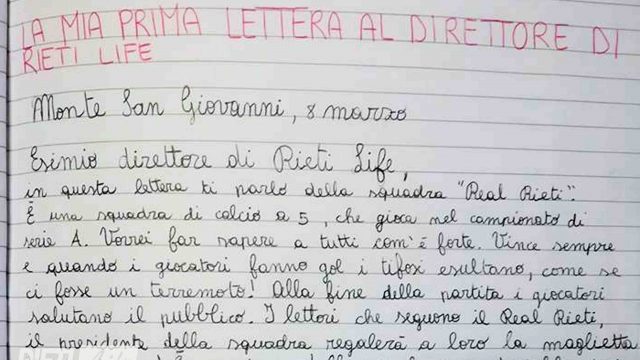 LA MIA PRIMA LETTERA AL DIRETTORE DI
RIETI LIFE
Monte San Giovanni, 8 marzo
Esimio direttore di Rieti Life,
in questa lettera ti parlo della squadra "Real Rieti".
È una squadra di calcio a 5, che gioca nel campionato di
serie A. Vorrei far sapere a tutti com'è forte. Vince sempre
e quando i giocatori fanno gol i tifosi esultano, come se
ci fosse un terremoto! Alla fine della partita i giocatori
salutano il pubblico. I lettori che seguono il Real Rieti,
il presidente della squadra regalerà a loro la maglietta